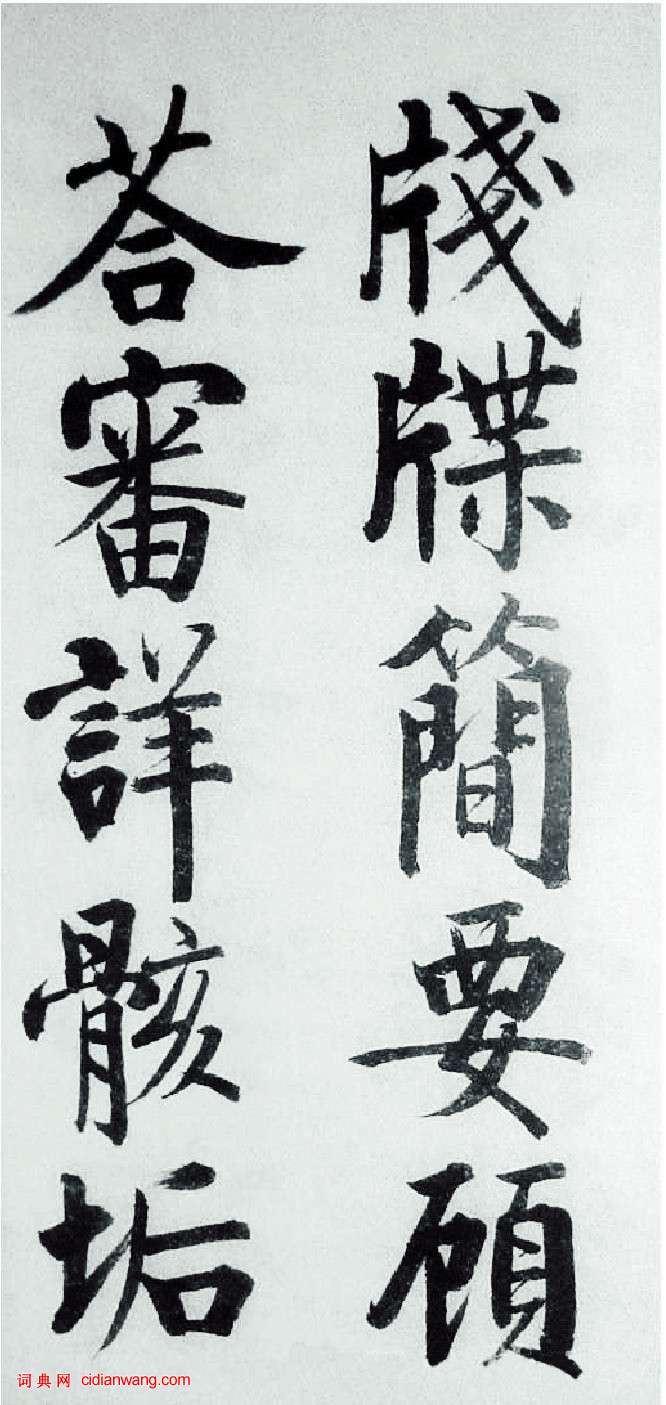 牋牒簡要顧
荅審詳骸垢
词典网 cidianwang.com